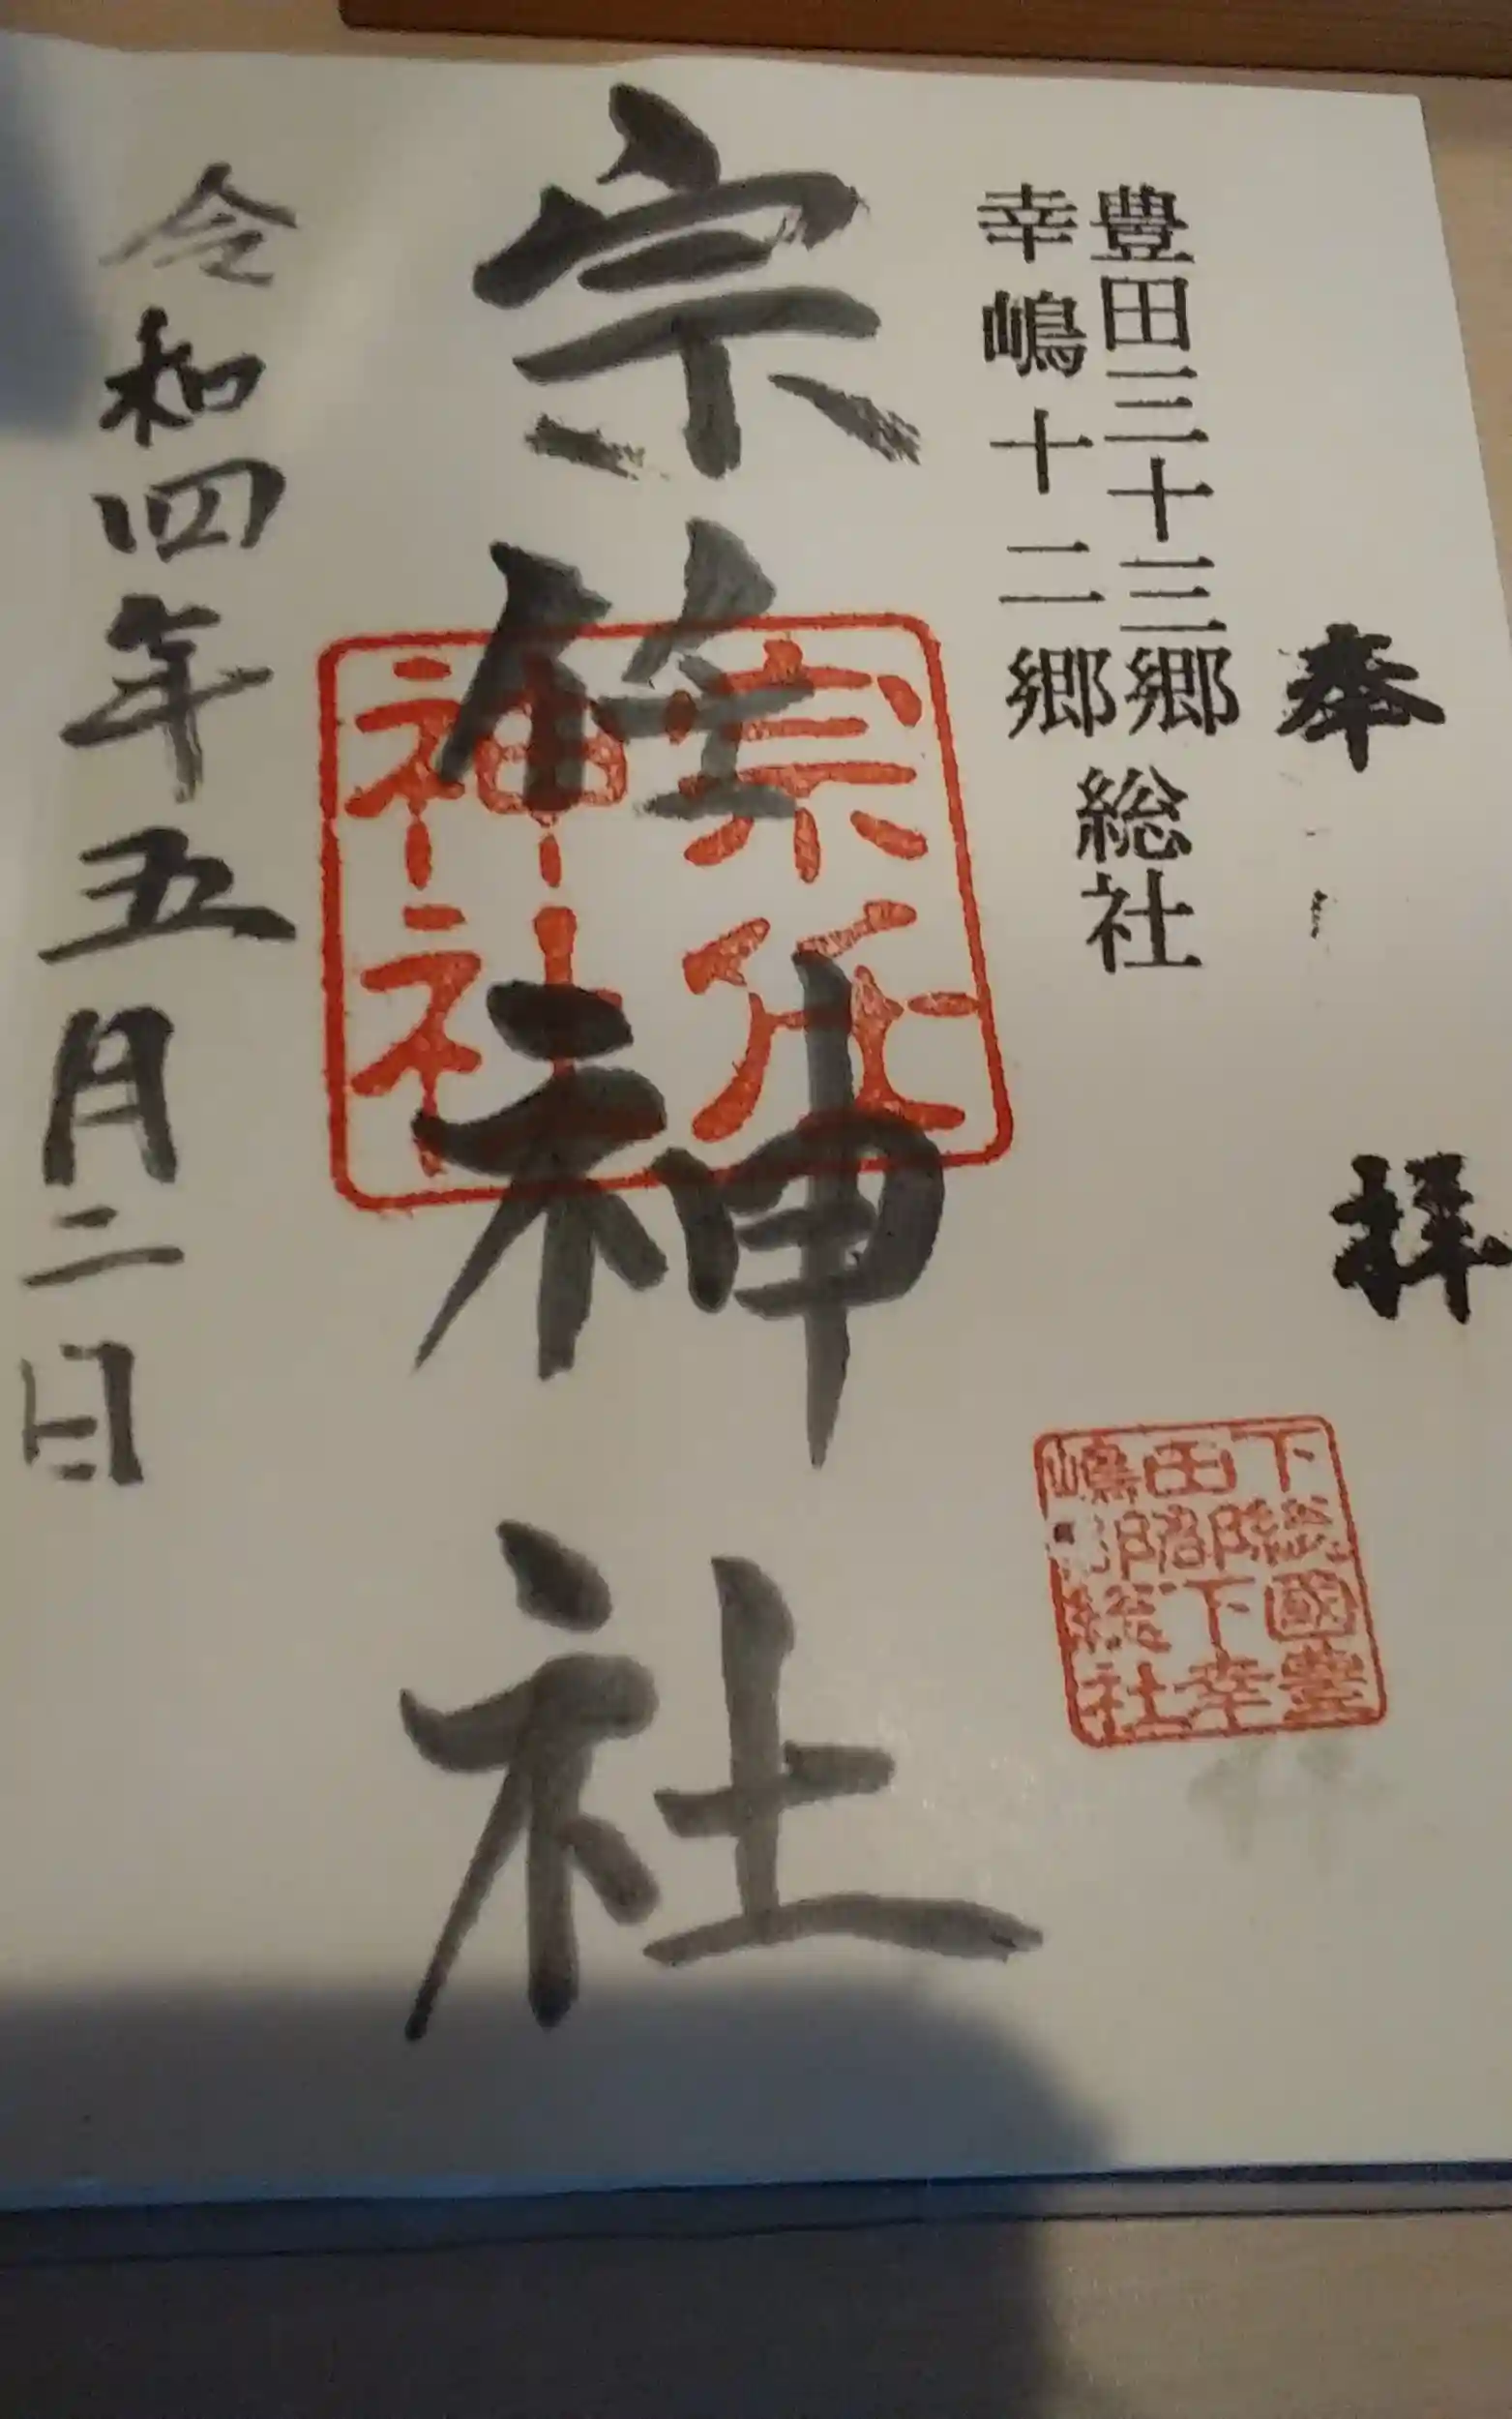 奉拝
豊田三十三郷
幸嶋十二郷
総社
下総國豊
田郡下幸
嶋郡総社
宗任神社
宗任
神社
令和四年五月二日